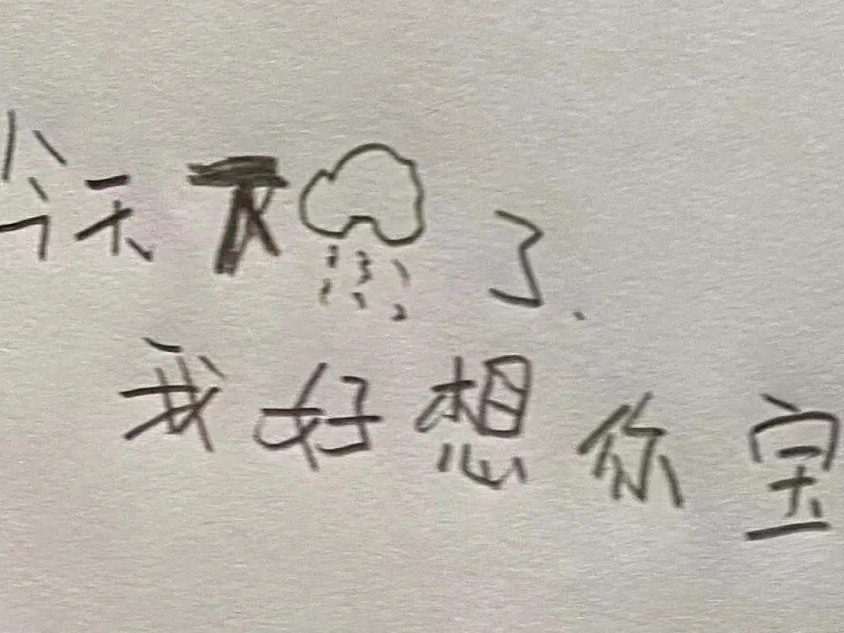 今天下了.
我好想你宝